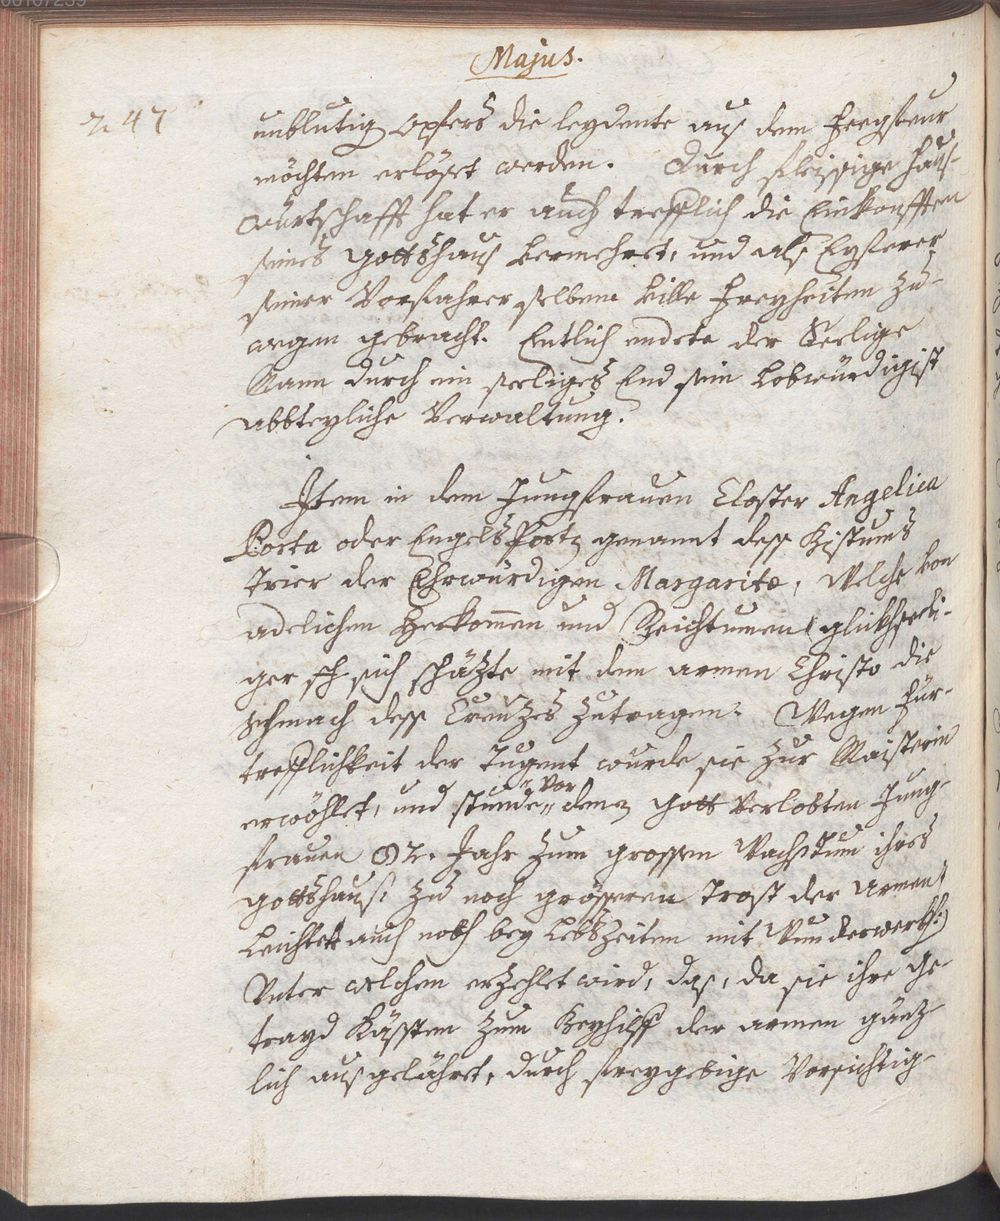 Majus.
247
unblutig Opfers die leydente auß dem Feegfeur
möchten erlöset werden. Durch fleissige Hauß-
würtschafft hat er auch trefflich die Einkonfften
seines Gottshauß vermehret, und als Eyferer
seiner Vorfahrer selbem ville Freyheiten zu-
wegen gebracht. Entlich endete der Seelige
Mann durch ein seeliges End sein Lobwürdigist
abbteyliche Verwaltung.
Item in dem Jungfrauen Closter Angelica
Porta oder EngelsPortz genannt dess Bistums
Trier der Ehrwürdigen Margaritæ, Welche von
adelichem Herkomen und Reichtumen glükhseeli-
ger sich schäzte mit dem armen Christo die
schmach dess Creutzes zutragen. Wegen für-
trefflichkeit der Tugent wurde sie zur Maisterin
erwöhlet, und stunde vor denen Gott Verlobten Jung-
frauen 92. Jahr zum grossem Wachstum ihres
Gottshauß zu noch grösseren Trost der Armen
Leichtet auch noch bey Lebszeiten mit Wunderwerkh:
Unter welchen erzehlet wird, daß, da sie ihre Ge-
trayd Kässten zum Beyhilff der armen gänz-
lich außgelähret, durch freygebige Vorsichtig-